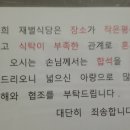 희 재별식당은 장소가 작은평
고 식탁이 부족한 관계로 혼
오시는 손님께서는 합석을
드리오니 넓으신 아량으로 많
해와 협조를 부탁드립니다.
대단히 죄송합니다